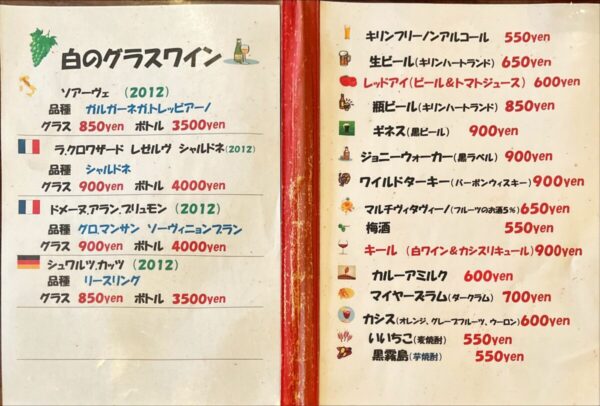 白のグラスワイン
ソアーヴェ (2012)
品種 ガルガーネガ・トレッビアーノ
グラス 850yen ボトル 3500yen
ラ.クロワザード レゼルヴ シャルドネ(2012)
品種 シャルドネ
グラス 900yen ボトル 4000yen
ドメーヌ.アラン.ブリュモン (2012)
品種 グロ.マンサン ソーヴィニョンブラン
グラス 900yen ボトル 4000yen
シュワルツ.カッツ (2012)
品種 リースリング
グラス 850yen ボトル 3500yen
キリンフリーノンアルコール 550yen
生ビール(キリンハートランド) 650yen
レッドアイ(ビール&トマトジュース) 600yen
瓶ビール(キリンハートランド) 850yen
ギネス(黒ビール) 900yen
ジョニーウォーカー(黒ラベル) 900yen
ワイルドターキー(バーボンウィスキー) 900yen
マルチヴィタヴィーノ(フルーツのお酒5%) 650yen
梅酒 550yen
キール (白ワイン&カシスリキュール) 900yen
カルーアミルク 600yen
マイヤーズラム(ダークラム) 700yen
カシス(オレンジ、グレープフルーツ、ウーロン) 600yen
いいちこ(麦焼酎) 550yen
黒霧島(芋焼酎) 550yen